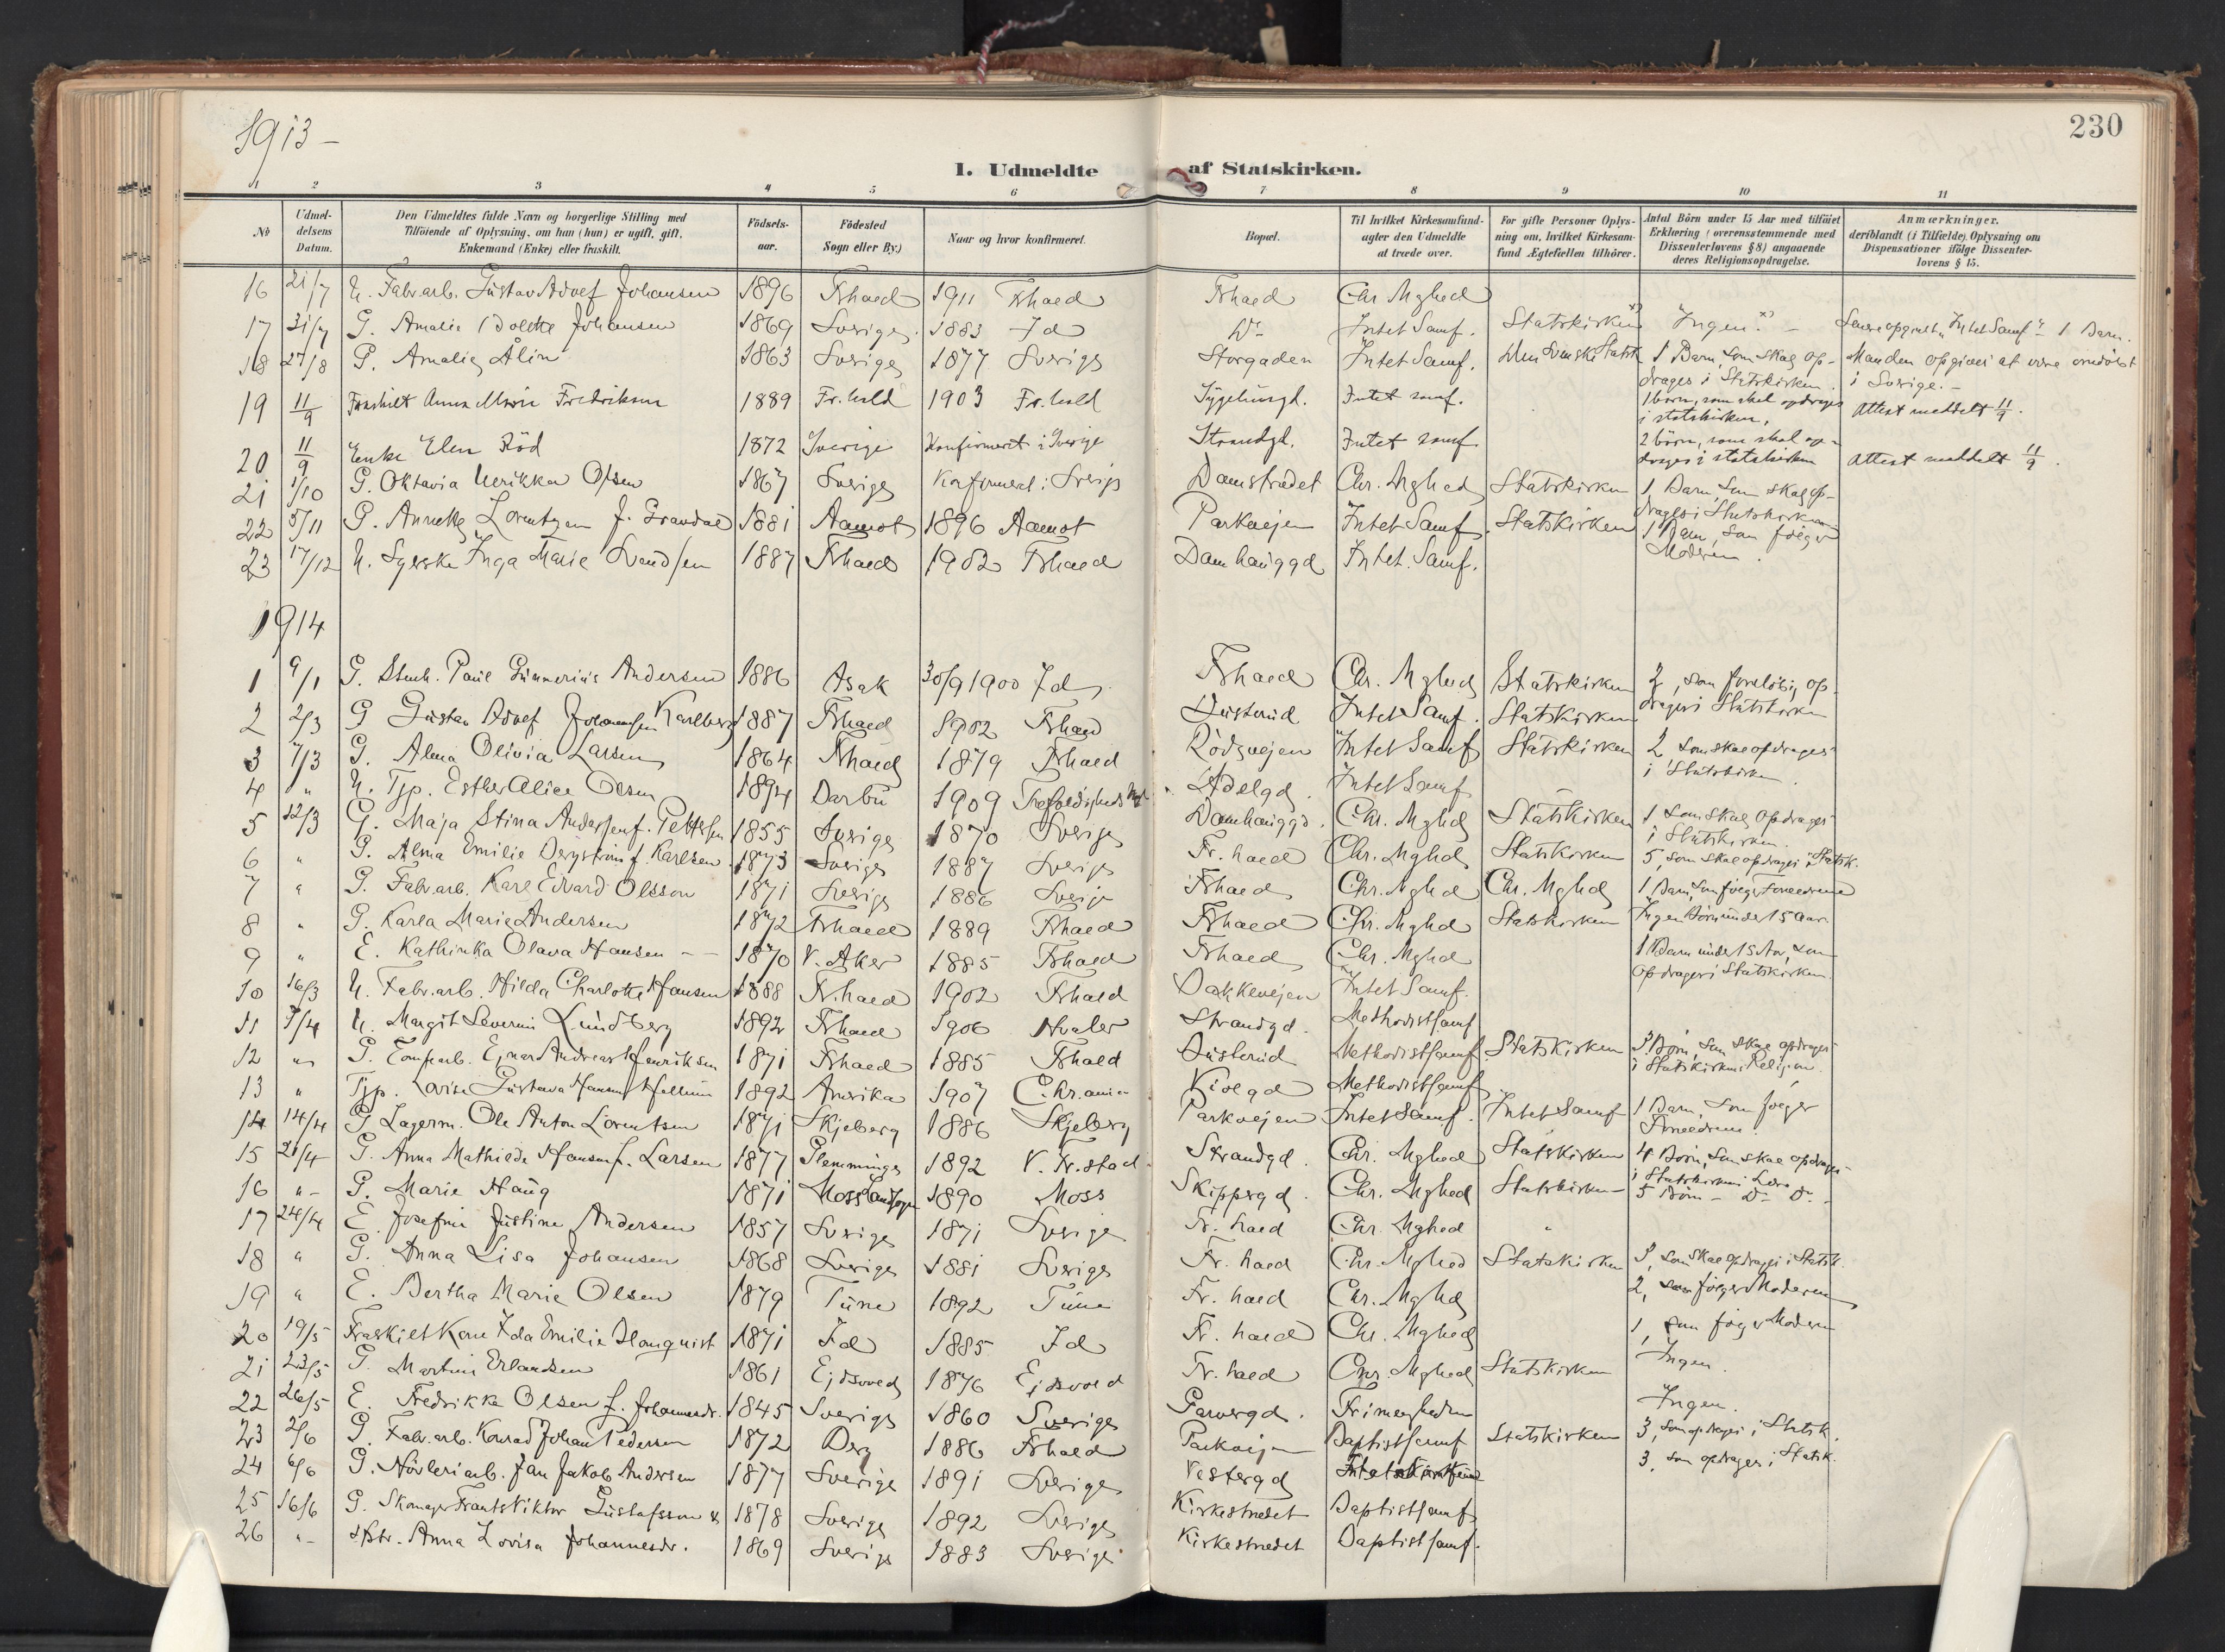 1913 –
230
1. Udmeldte af Statskirken.
1 2 3 4 5 6 7 8 9 10 11
No
Udmel-
delsens
Datum.
Den Udmeldtes fulde Navn og borgerlige Stilling med
Tilföiende af Oplysning, om han (hun) er ugift, gift,
Enkemand (Enke) eller fraskilt.
Födsels-
aar.
Födested
Sogn eller By.)
Naar og hvor konfirmeret.
Bopæl.
Til hvilket Kirkesamfund-
agter den Udmeldte
at træde over.
For gifte Personer Oplys-
ning om, hvilket Kirkesam-
fund Ægtefællen tilhörer.
Antal Börn under 15 Aar med tilföiet
Erklæring (overensstemmende med
Dissenterlovens § 8) angaaende
deres Religionsopdragelse.
Anmærkninger.
deriblandt (i Tilfælde) Oplysning om
Dispensationer ifölge Dissenter-
lovens § 15.
16 21/7 U. Fabr.arb. Gustav Adolf Johansen 1896 Frhald 1911 Frhald Frhald Chr Mghed
17 31/7 G. Amalie Bolette Johansen 1869 Sverige. 1883 Id Do Intet Samf. Statskirken x) "Ingen" x) – Senere opgivet "Intet Samf" – 1 Barn.
18 27/8 G. Amalie Ålin 1863 Sverige 1877 Sverige Storgaden Intet Samf. Den Svenske Statsk 1 Barn, som skal op- Manden opgives at være omdöbt
drages i Statskirken. i Sverige. –
19 11/9 Fraskilt Anna Marie Fredriksen 1889 Fr.hald 1903 Fr.hald Sygehusgd. Intet samf. 1 barn, som skal opdrages attest meddelt 11/9.
i statskirken.
20 11/9 Enke Elen Röd 1872 Sverige Konfirmeret i Sverige Strandgd. Intet samf. 2 börn, som skal op-
drages i statskirken attest meddelt 11/9.
21 1/10 G. Oktavia Ulrikka Olsen 1867 Sverige Konfirmeret i Sverige Damstrædet Chr. Mghed Statskirken 1 Barn, som skal op-
drages i Statskirken
22 5/11 G. Annette Lorentzen f. Grandal 1881 Aamot 1896 Aamot Parkveien Intet Samf. Statskirken 1 Barn, som följer
Moderen.
23 17/12 U. Syerske Inga Marie Svendsen 1887 Frhald 1902 Frhald Damhauggd Intet. Samf.
1914
1 9/1 G. Stenh. Paul Gunnerius Andersen 1886 Asak 30/9 1900 Id Frhald Chr. Mghed Statskirken 2, som foreløbig op-
drages i Statskirken
2 2/3 G Gustav Adolf Johannesen Karlberg 1887 Frhald 1902 Frhald Austerud Intet Samf. Statskirken
3 7/3 G. Alma Olivia Larsen 1864 Frhald 1879 Frhald Rödsveien Intet Samf Statskirken 2 som skal opdrages
i Statskirken.
4 " U. Tjp. Esther Alice Olsen 1894 Darbu 1909 Trefoldigheds Adelgd. Intet Samf –
5 12/3 G. Maja Stina Andersen f. Pettersen 1855 Sverige 1870 Sverige Damhauggd. Chr. Mghd Statskirken 1 som skal opdrages
i Statskirken.
6 " G. Alma Emilie Bergström f. Karlsen 1873 Sverige 1887 Sverige Fr. hald Chr. Mghd Statskirken 5, som skal opdrages i Statsk.
7 " G. Fabr.arb. Karl Edvard Olsson 1871 Sverige 1886 Sverige Frhald Chr. Mghd Chr. Mghd 1 Barn, som følger Forældrene
8 " G. Karla Marie Andersen 1872 Frhald 1889 Frhald Frhald Chr. Mghd Statskirken Ingen Börn under 15 Aar
9 " E. Kathinka Olava Hansen – – 1870 V. Aker 1885 Frhald Frhald Chr. Mghd 1 Barn under 15 Aar, som
opdrages i Statskirken.
10 16/3 U. Fabr.arb. Hilda Charlotte Hansen 1888 Fr.hald 1902 Frhald Bakkeveien Intet Samf.
11 7/4 U. Margit Severine Lundberg 1892 Frhald 1906 Hvaler Strandgd. Methodistsamf
12 " G. Tomtearb. Ejnar Andreas Henriksen 1871 Frhald 1885 Frhald Austerud Methodistsamf. Statskirken 3 Börn, som skal opdrages
i Statskirkens Religion.
13 " Tjp. Lovise Gustava Hansen 1892 Amerika 1907 Chr.ania Methodistsamf.
14 14/4 G Lagerm. Ole Anton Lorentsen 1871 Skjeberg 1886 Skjeberg Parkveien Intet Samf. Intet Samf 1 Barn, som følger
Forældrene.
15 21/4 G. Anna Mathilde Hansen f. Larsen 1877 Glemminge 1892 V. Fr.stad Strandgd. Chr. Mghed Statskirken 4 Börn, som skal opdrages
i Statskirkens Lære
16 " – G. Marie Haug 1871 Moss Landsogn 1890 Moss Skippergd. Chr. Mghed Statskirken 5 Börn – Do – Do.
17 24/4 E. Josefine Justine Andersen 1857 Sverige 1871 Sverige Fr. hald Chr. Mghed "
18 " G. Anna Lisa Johansen 1868 Sverige 1881 Sverige Fr. hald Chr. Mghed Statskirken 3, som skal opdrages i Statsk.
19 " E. Bertha Marie Olsen 1879 Tune 1892 Tune Fr. hald Chr. Mghd 2, som følger Moderen
20 19/5 Fraskilt Kone Ida Emilie Blomquist 1871 Id 1885 Id Fr. hald Chr. Mghed 1, som følger Moderen
21 23/5 G. Martin Erlandsen 1861 Ejdsvold 1876 Ejdsvold Fr. hald Chr. Mghed Statskirken Ingen.
22 26/5 E. Fredrikke Olsen f. Johannesdr. 1845 Sverige 1860 Sverige Garvergd. Frimenigheden Ingen.
23 2/6 G. Fabr.arb. Konrad Johan Pedersen 1872 Berg 1886 Frhald Parkveien Baptistsamf Statskirken 3, som opdrages i Statsk.
24 6/6 G. Hövleriarb. Jan Jakob Andersen 1877 Sverige 1891 Sverige Vestergd Intet Samfund 3, som opdrages i Statsk.
25 16/6 G. Skomager Frants Viktor Gustafsson & 1878 Sverige 1892 Sverige Kirkestrædet Baptistsamf
26 " – Hstr. Anna Lovisa Johannesdr. 1869 Sverige 1883 Sverige Kirkestrædet Baptistsamf.